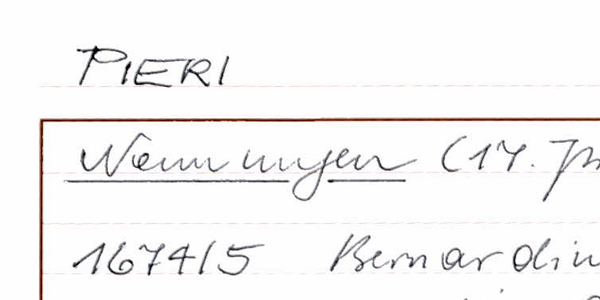 PIERI
Nennungen (17. Jh
1674/5 Bernardin